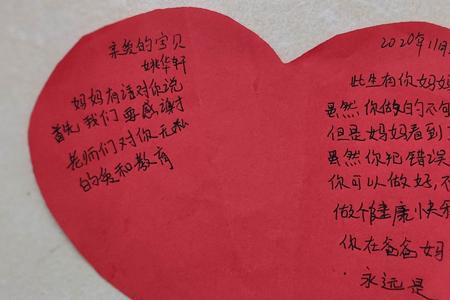 亲爱的宝贝
姚华轩
妈妈有话对你说
首先,我们要感谢
老师们对你无私
的爱和教育
2020年11月
此生有你妈妈
虽然你做的不
但是妈妈看到了
虽然你犯错误
你可以做好,不
做个健康快乐
你在爸爸妈
永远是